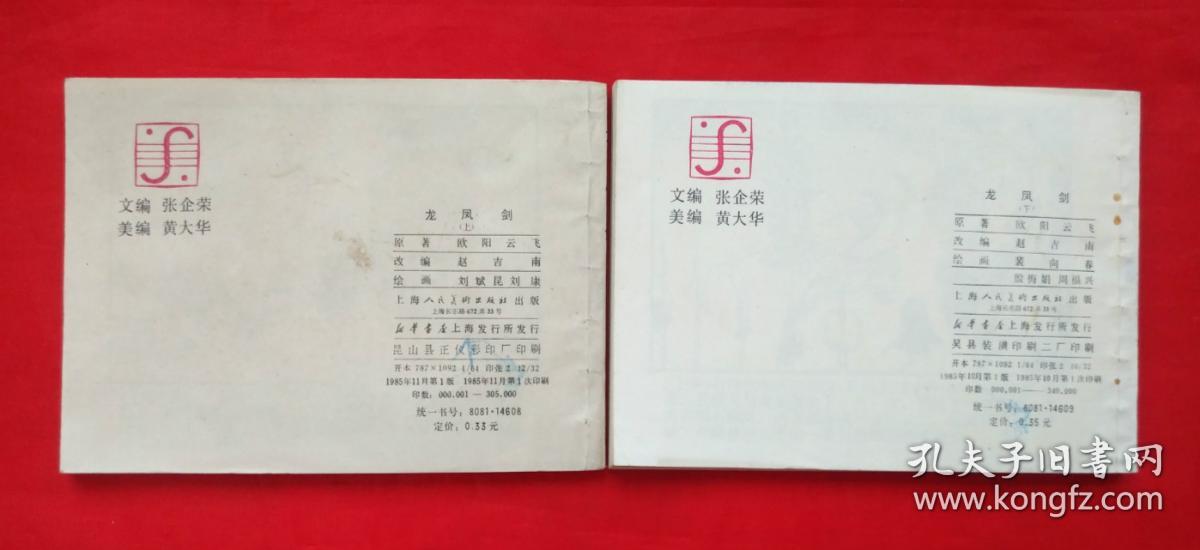 文编 张企荣
美编 黄大华
龙凤剑
(上)
原著 欧阳云飞
改编 赵吉南
绘画 刘斌昆 刘康
上海人民美术出版社出版
上海长乐路672弄33号
新华书店上海发行所发行
昆山县正仪彩印厂印刷
开本 787×1092 1/64 印张 2 12/32
1985年11月第1版 1985年11月第1次印刷
印数：000.001—305.000
统一书号：8081·14608
定价：0.33元
文编 张企荣
美编 黄大华
龙凤剑
(下)
原著 欧阳云飞
改编 赵吉南
绘画 裴向春
殷梅娟 周福兴
上海人民美术出版社出版
上海长乐路672弄33号
新华书店上海发行所发行
吴县装潢印刷二厂印刷
开本 787×1092 1/64 印张 2 /32
1985年10月第1版 1985年10月第1次印刷
印数 000.001—340.000
统一书号：8081·14609
定价：0.35元
孔夫子旧书网
www.kongfz.com